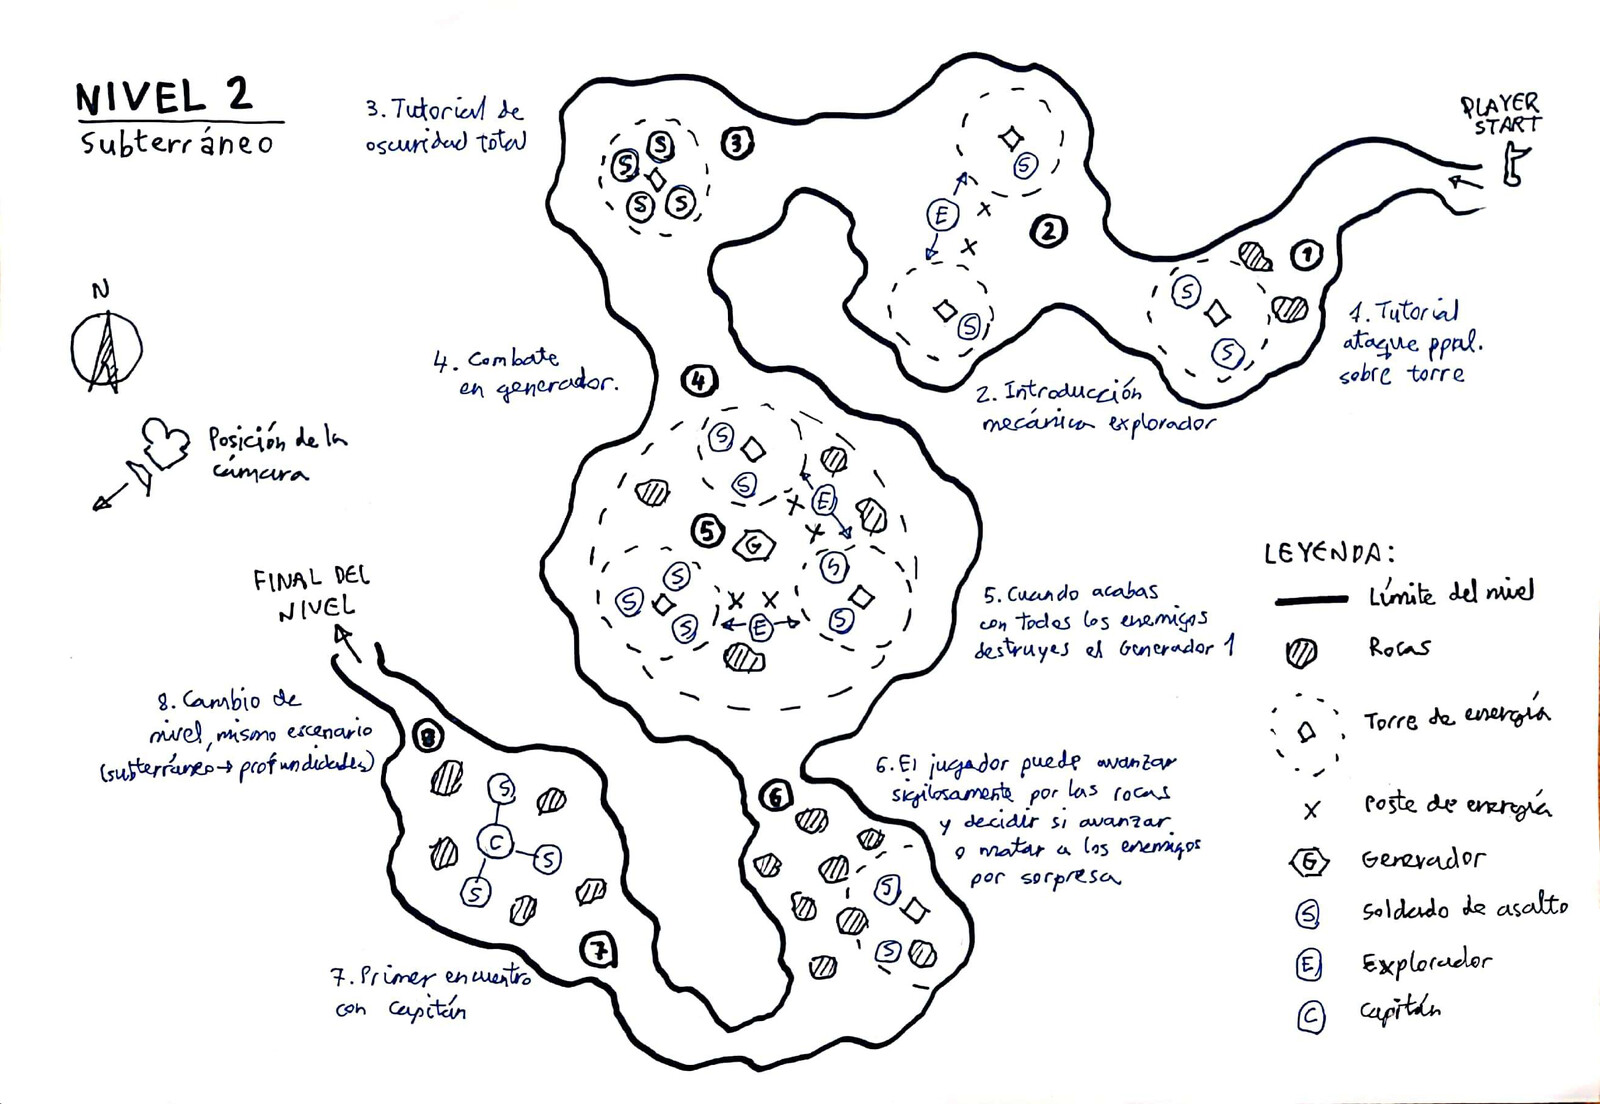 NIVEL 2
Subterráneo
3. Tutorial de
oscuridad total
PLAYER
START
N
Posición de la
cámara
1. Tutorial
ataque ppal.
sobre torre
2. Introducción
mecánica explorador
4. Combate
en generador.
5. Cuando acabas
con todos los enemigos
destruyes el Generador 1
6. El jugador puede avanzar
sigilosamente por las rocas
y decidir si avanzar
o matar a los enemigos
por sorpresa
7. Primer encuentro
con capitán
8. Cambio de
nivel, mismo escenario
(subterráneo → profundidades)
FINAL DEL
NIVEL
1
2
3
4
5
6
7
8
S
S
S
S
S
E
S
S
S
S
S
E
G
S
S
S
S
S
E
S
S
S
C
S
S
LEYENDA:
Límite del nivel
Rocas
Torre de energía
X Poste de energía
G Generador
S Soldado de asalto
E Explorador
C Capitán